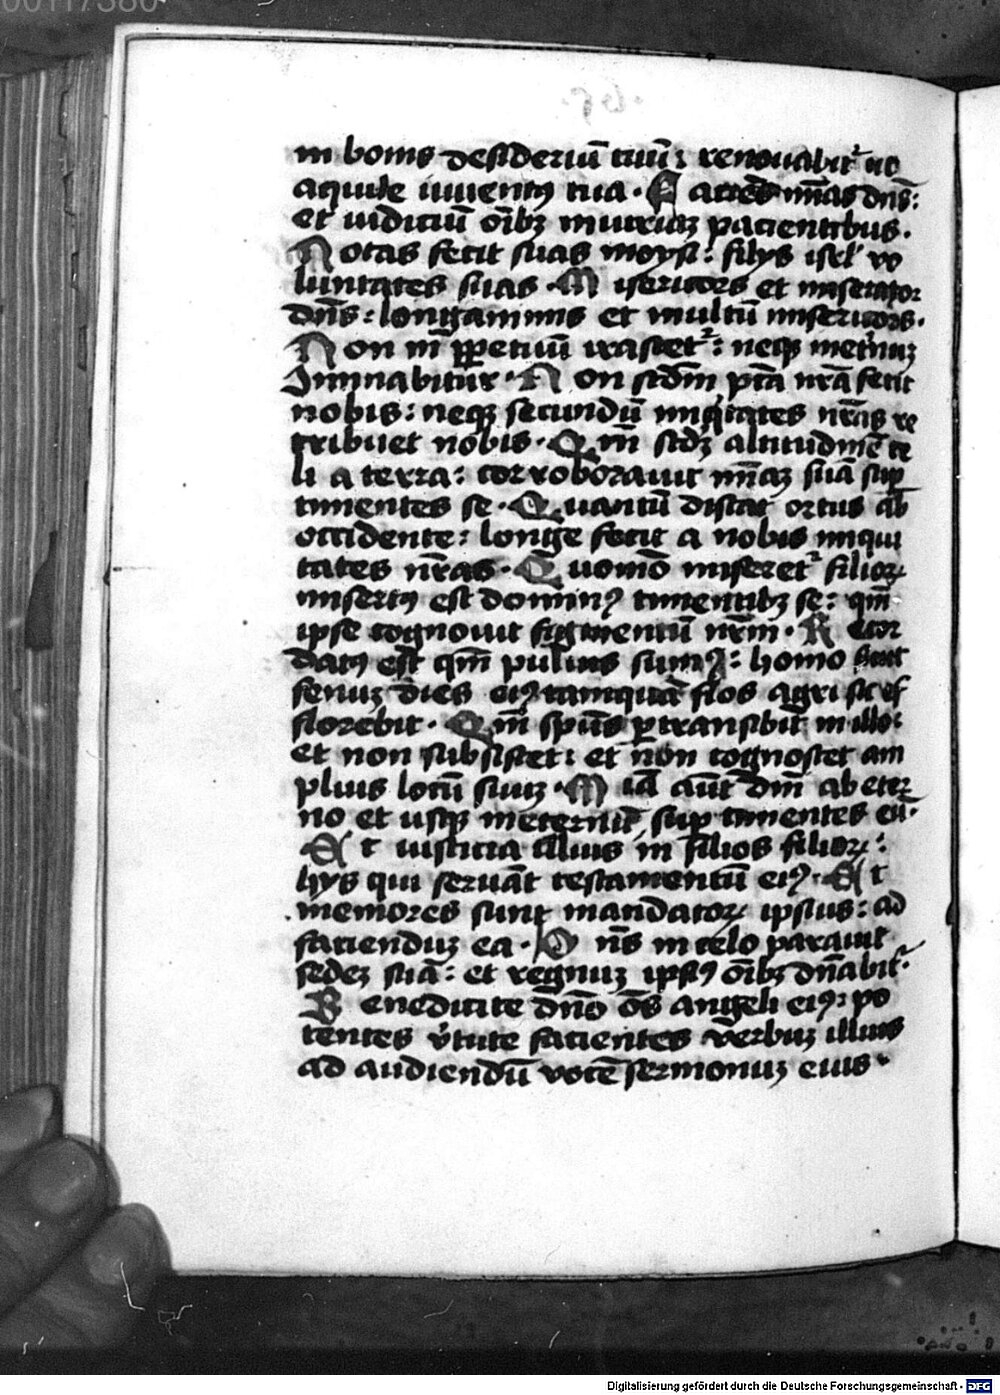 in bonis desideriū tuū: renouabit᷑ ut
aquile iuuentꝰ tua. Faciēs mīas dn̄s:
et iudiciū oīb⁊ iniuriaʒ pacientibus.
Notas fecit suas moysi: filijs isrl' vo
luntates suas. Misericors et miserator
dn̄s: longanimis et multū misericors.
Non in ꝑpetuū irascet᷑: neqꝫ in et̄nuʒ
cominabitur. Non scd̄m pctā nr̄a fecit
nobis: neqꝫ secundū iniqͥtates nr̄as re
tribuet nobis. Qm̄ scd̄ʒ altitudinē ce
li a terra: corroborauit mīaʒ suā sup̄
timentes se. Quantū distat ortus ab
occidente: longe fecit a nobis iniqui
tates nr̄as. Quomō miseret᷑ filioꝝ
misertꝰ est dominꝰ timentibꝫ se: qm̄
ipse cognouit figmentū nr̄m. Recor
datꝰ est qm̄ puluis sumꝰ: homo sicut
fenuʒ dies eiꝰ tamquā flos agri sic ef
florebit. Qm̄ sp̄us ꝑtransibit in illo:
et non subsistet: et non cognoscet am
plius locū suuʒ. Mīa aūt dn̄i ab eter
no et usqꝫ in eternū sup̄ timentes eū.
Et iusticia illius in filios filioꝝ:
hijs qui seruāt testamentū eiꝰ. Et
memores sunt mandatoꝝ ipsius: ad
facienduʒ ea. Dn̄s in celo parauit
sedeʒ suā: et regnuʒ ipsiꝰ oīb⁊ dn̄abit᷑.
Benedicite dn̄o oēs angeli eiꝰ: po
tentes v̓tute facientes verbuʒ illius
ad audiendū vocē sermonuʒ eius.
Digitalisierung gefördert durch die Deutsche Forschungsgemeinschaft - DFG